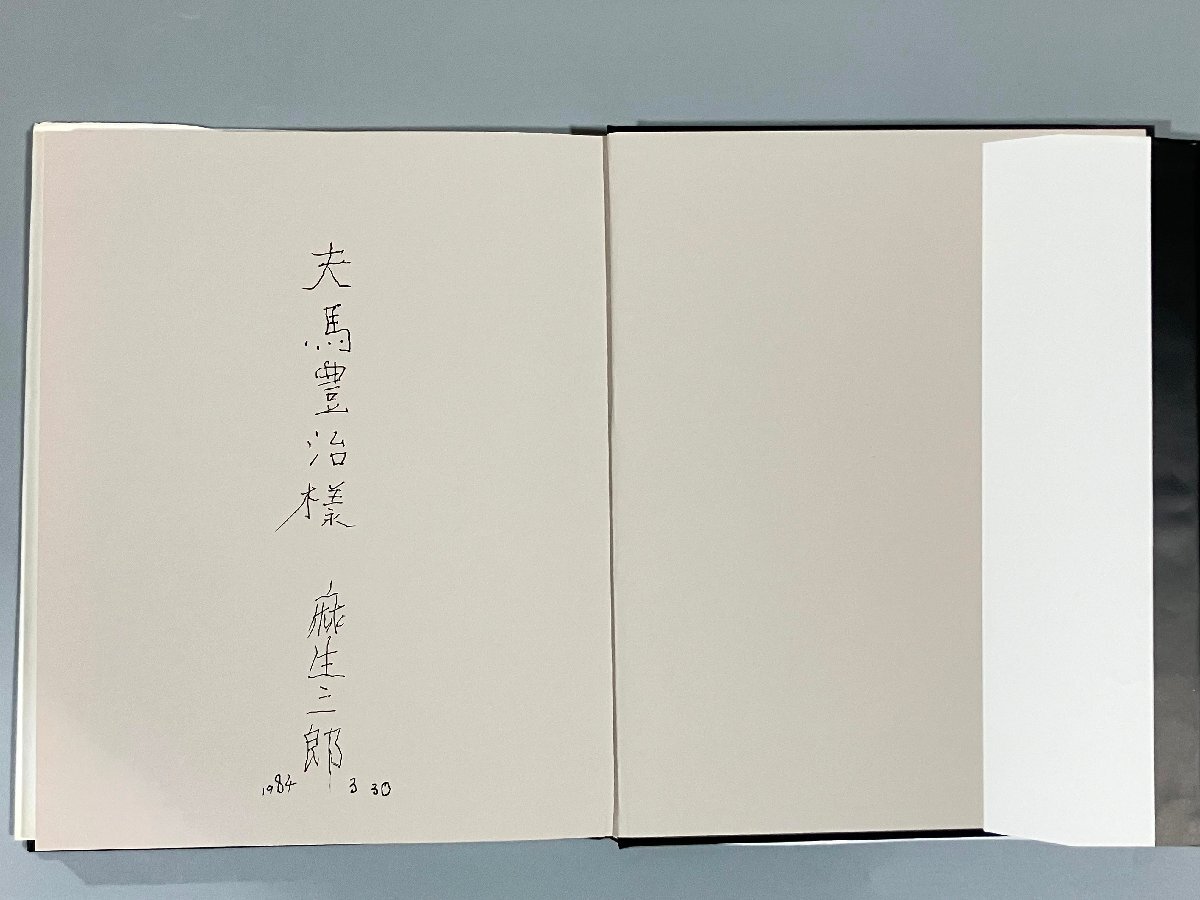 夫馬豊治様 麻生三郎
1984 3 30